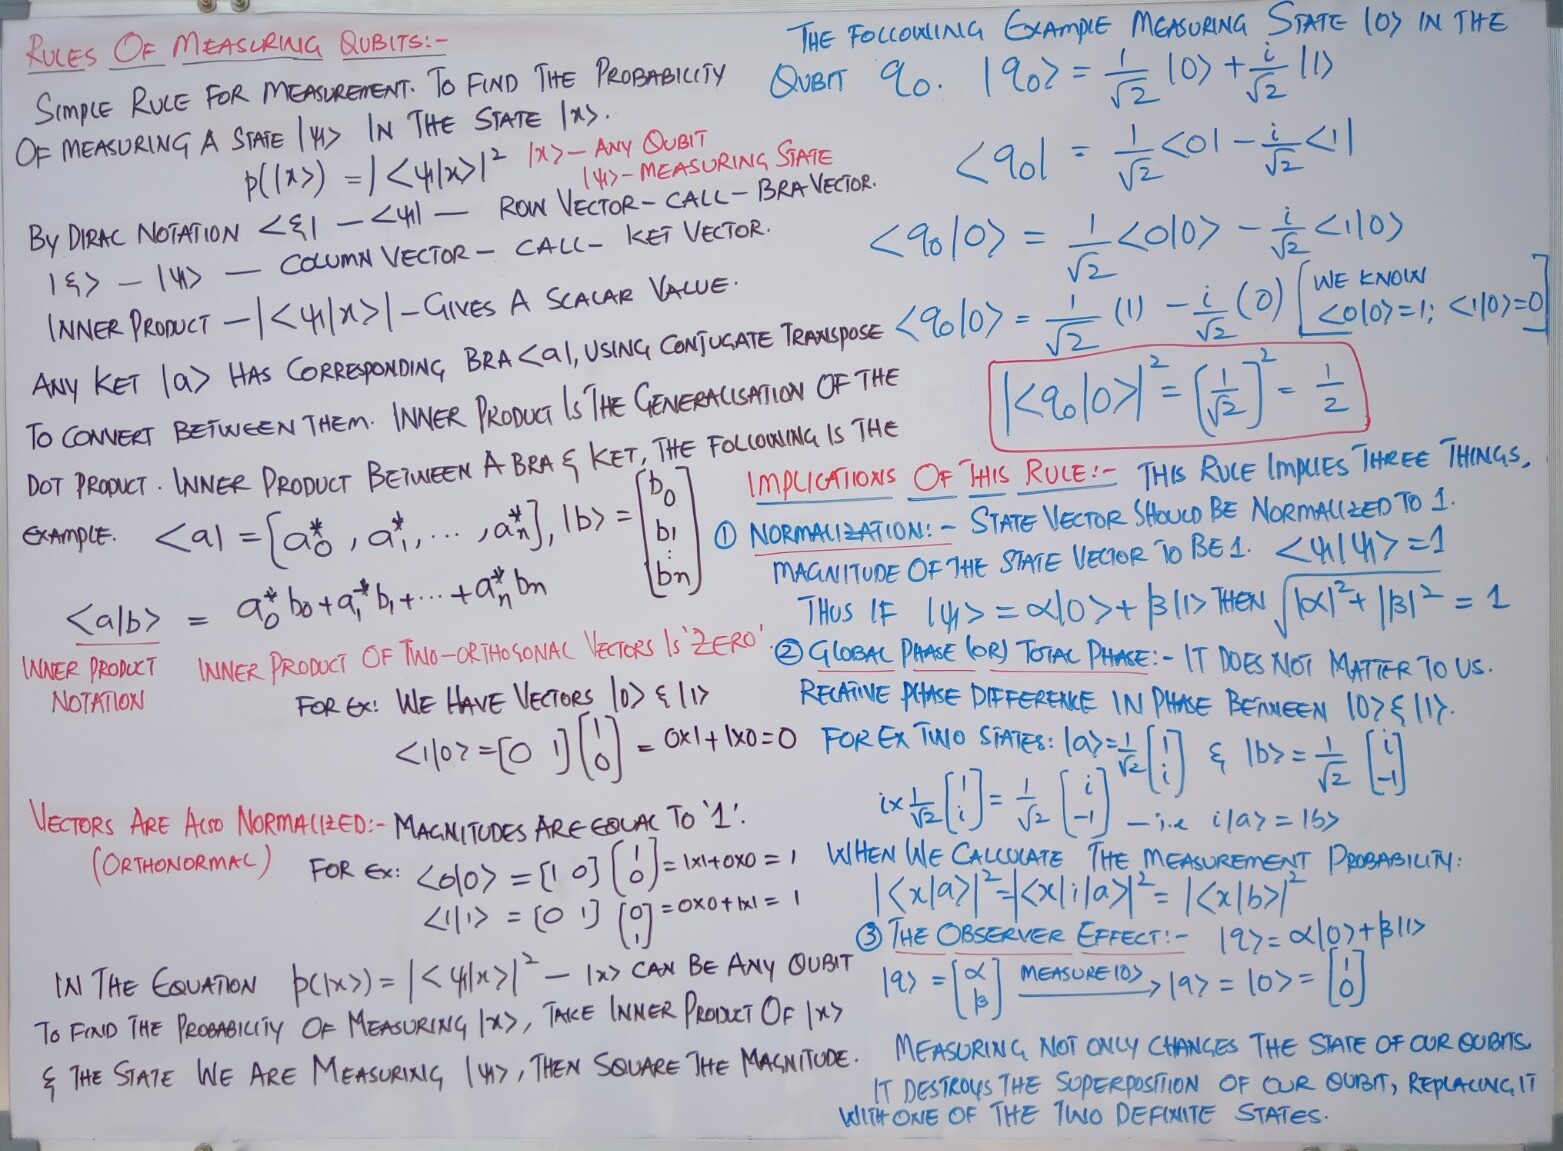 RULES OF MEASURING QUBITS:-
SIMPLE RULE FOR MEASUREMENT. TO FIND THE PROBABILITY
OF MEASURING A STATE |ψ> IN THE STATE |x>.
p(|x>) = |<ψ|x>|² |x> — ANY QUBIT
|ψ> - MEASURING STATE
BY DIRAC NOTATION <ξ| — <ψ| — ROW VECTOR - CALL - BRA VECTOR.
|ξ> — |ψ> — COLUMN VECTOR - CALL - KET VECTOR.
INNER PRODUCT — |<ψ|x>| - GIVES A SCALAR VALUE.
ANY KET |a> HAS CORRESPONDING BRA <a|, USING CONJUGATE TRANSPOSE
TO CONVERT BETWEEN THEM. INNER PRODUCT IS THE GENERALISATION OF THE
DOT PRODUCT. INNER PRODUCT BETWEEN A BRA & KET, THE FOLLOWING IS THE
EXAMPLE. <a| = [a₀*, a₁*, ..., aₙ*], |b> = [b₀ b₁ ⋮ bₙ]
<a|b> = a₀* b₀ + a₁* b₁ + ... + aₙ* bₙ
INNER PRODUCT NOTATION
INNER PRODUCT OF TWO-ORTHOGONAL VECTORS IS 'ZERO'.
FOR EX: WE HAVE VECTORS |0> & |1>
<1|0> = [0 1] [1 0] = 0x1 + 1x0 = 0
VECTORS ARE ALSO NORMALIZED:- MAGNITUDES ARE EQUAL TO '1'.
(ORTHONORMAL) FOR EX: <0|0> = [1 0] [1 0] = 1x1+0x0 = 1
<1|1> = [0 1] [0 1] = 0x0+1x1 = 1
IN THE EQUATION p(|x>) = |<ψ|x>|² — |x> CAN BE ANY QUBIT
TO FIND THE PROBABILITY OF MEASURING |x>, TAKE INNER PRODUCT OF |x>
& THE STATE WE ARE MEASURING |ψ>, THEN SQUARE THE MAGNITUDE.
THE FOLLOWING EXAMPLE MEASURING STATE |0> IN THE
QUBIT q₀. |q₀> = 1/√2 |0> + i/√2 |1>
<q₀| = 1/√2 <0| - i/√2 <1|
<q₀|0> = 1/√2 <0|0> - i/√2 <1|0>
<q₀|0> = 1/√2 (1) - i/√2 (0) [WE KNOW
<0|0>=1; <1|0>=0]
|<q₀|0>|² = [1/√2]² = 1/2
IMPLICATIONS OF THIS RULE:- THIS RULE IMPLIES THREE THINGS,
① NORMALIZATION:- STATE VECTOR SHOULD BE NORMALIZED TO 1.
MAGNITUDE OF THE STATE VECTOR TO BE 1. <ψ|ψ> = 1
THUS IF |ψ> = α|0> + β|1> THEN √|α|² + |β|² = 1
② GLOBAL PHASE (OR) TOTAL PHASE:- IT DOES NOT MATTER TO US.
RELATIVE PHASE DIFFERENCE IN PHASE BETWEEN |0> & |1>.
FOR EX TWO STATES: |a> = 1/√2 [1 i] & |b> = 1/√2 [i -1]
i x 1/√2 [1 i] = 1/√2 [i -1] — i.e i|a> = |b>
WHEN WE CALCULATE THE MEASUREMENT PROBABILITY:
|<x|a>|² = |<x|i|a>|² = |<x|b>|²
③ THE OBSERVER EFFECT:- |q> = α|0> + β|1>
|q> = [α β] MEASURE |0> → |q> = |0> = [1 0]
MEASURING NOT ONLY CHANGES THE STATE OF OUR QUBITS
IT DESTROYS THE SUPERPOSITION OF OUR QUBIT, REPLACING IT
WITH ONE OF THE TWO DEFINITE STATES.